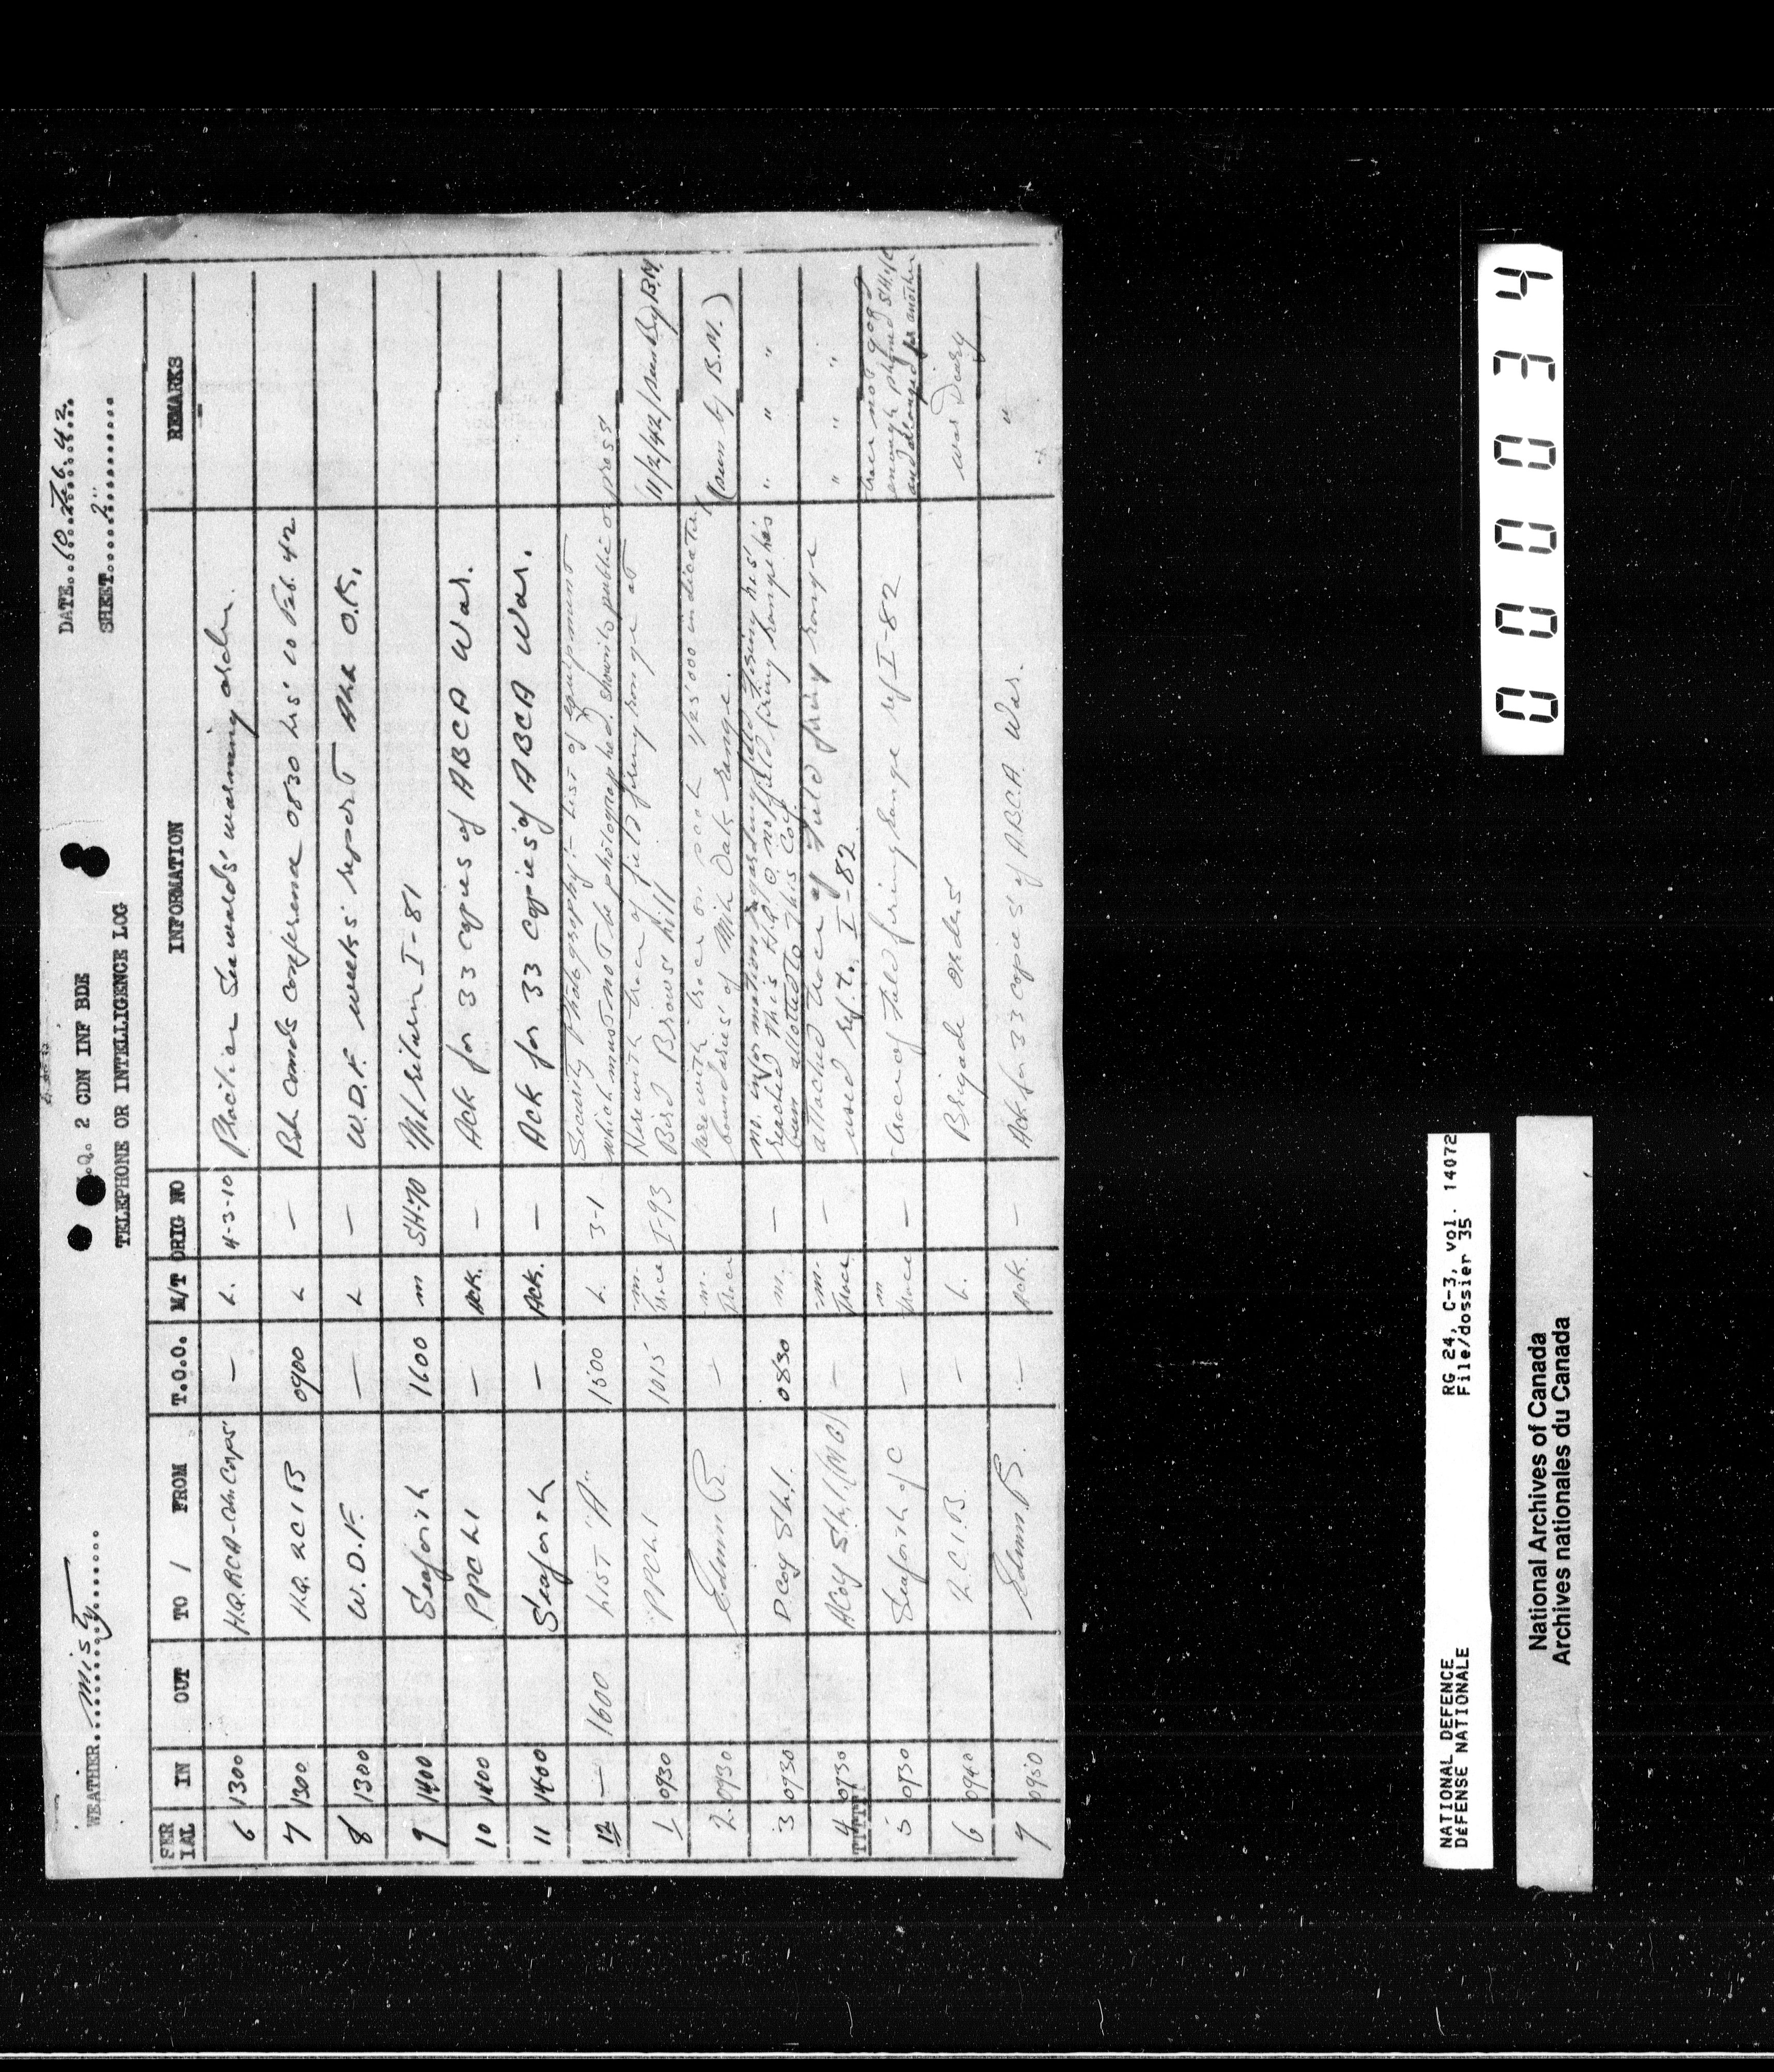 H.Q. 2 CDN INF BDE
TELEPHONE OR INTELLIGENCE LOG
WEATHER....misty......
DATE..10.Feb.42..
SHEET.....2.........
SER IAL IN OUT TO / FROM T.O.O. M/T ORIG NO INFORMATION REMARKS
6 1300 H.Q. RCA - Cdn Corps — L. 4-3-10 Practice Seawalds' warning order.
7 1300 H.Q. 2C1B 0900 L — Bde Comds conference 0830 hrs 10 Feb. 42
8 1300 W.D.F. — L — W.D.F. weeks' report O.K.
9 1400 Seaforth 1600 m SH-70 return I-81
10 1400 PPCLI — Ack. — Ack for 33 copies of ABCA War.
11 1400 Seaforth — Ack. — Ack for 33 copies of ABCA War.
12 — 1600 LIST "A" 1500 L. 3-1 Security Photography:- List of equipment
which must not be photographed, shown to public or press
1 0930 PPCLI 1015 -m- trace I-93 Herewith trace of field firing range at
Bird Brows' hill
11/2/42 (seen By B.M.
2. 0930 Edmn R. — -m- trace Herewith trace on indicating
boundaries of Range.
(seen by B.M.)
3 0930 D Coy 0830 m. — no. information regarding field firing has
reached this H.Q. no field firing range has
been allotted to this Coy.
" " "
4 0930 A Coy (MG) — -m- trace — attached trace of field firing range
used ref. I-82.
" " "
5 0930 Seaforth of C — m trace — trace of field firing range ref I-82
trace not good
enough phoned SH of C
and arranged for another
6 0940 2.C.I.B. — L. Brigade orders
War Diary
7 0950 Edmn. R. — Ack. — Ack for 33 copies of A.B.C.A. War.
"
0 0 0 0 3 4
NATIONAL DEFENCE RG 24, C-3, vol. 14072
DÉFENSE NATIONALE File/dossier 35
National Archives of Canada
Archives nationales du Canada